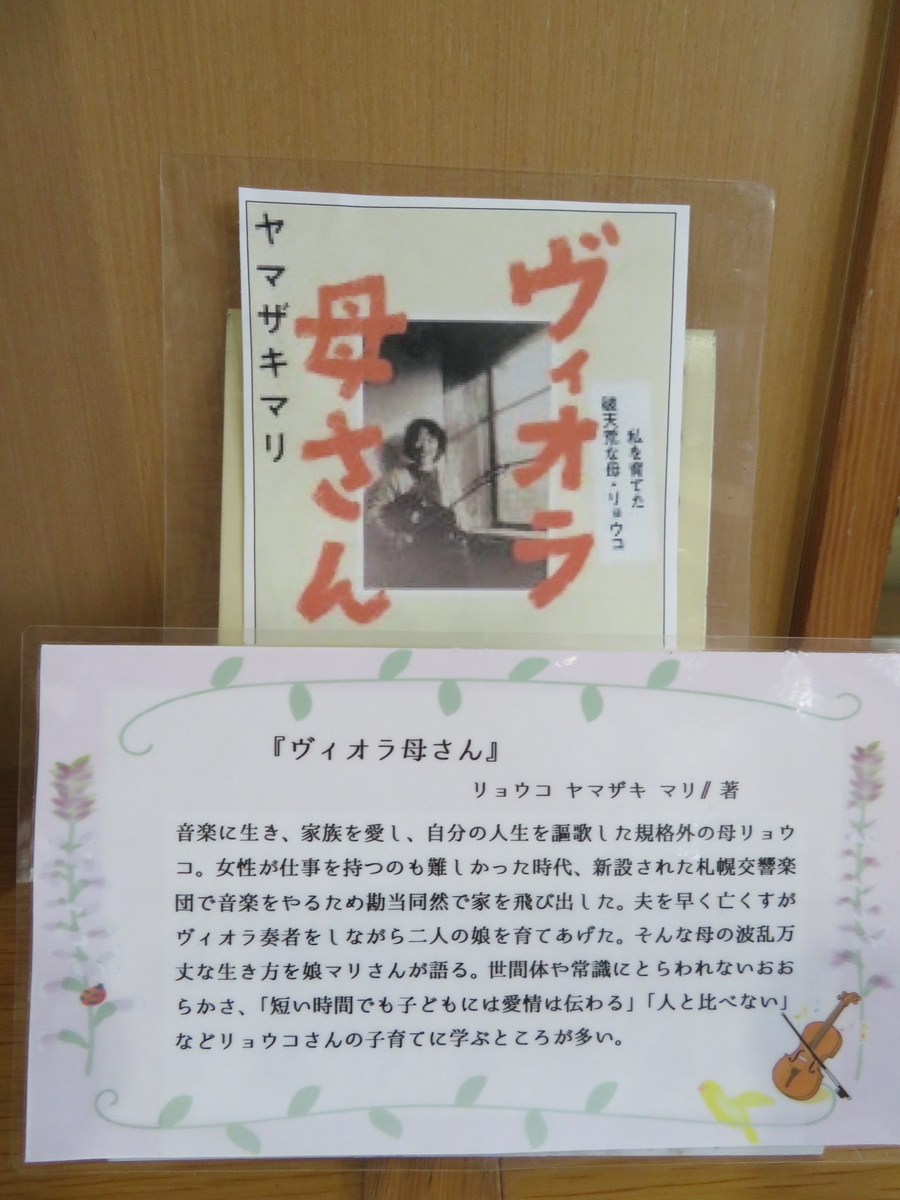 ヴィオラ
母さん
私を育てた
破天荒な母・リョウコ
ヤマザキマリ
『ヴィオラ母さん』
リョウコ ヤマザキ マリ∥著
音楽に生き、家族を愛し、自分の人生を謳歌した規格外の母リョウ
コ。女性が仕事を持つのも難しかった時代、新設された札幌交響楽
団で音楽をやるため勘当同然で家を飛び出した。夫を早く亡くすが
ヴィオラ奏者をしながら二人の娘を育てあげた。そんな母の波乱万
丈な生き方を娘マリさんが語る。世間体や常識にとらわれないおお
らかさ、「短い時間でも子どもには愛情は伝わる」「人と比べない」
などリョウコさんの子育てに学ぶところが多い。